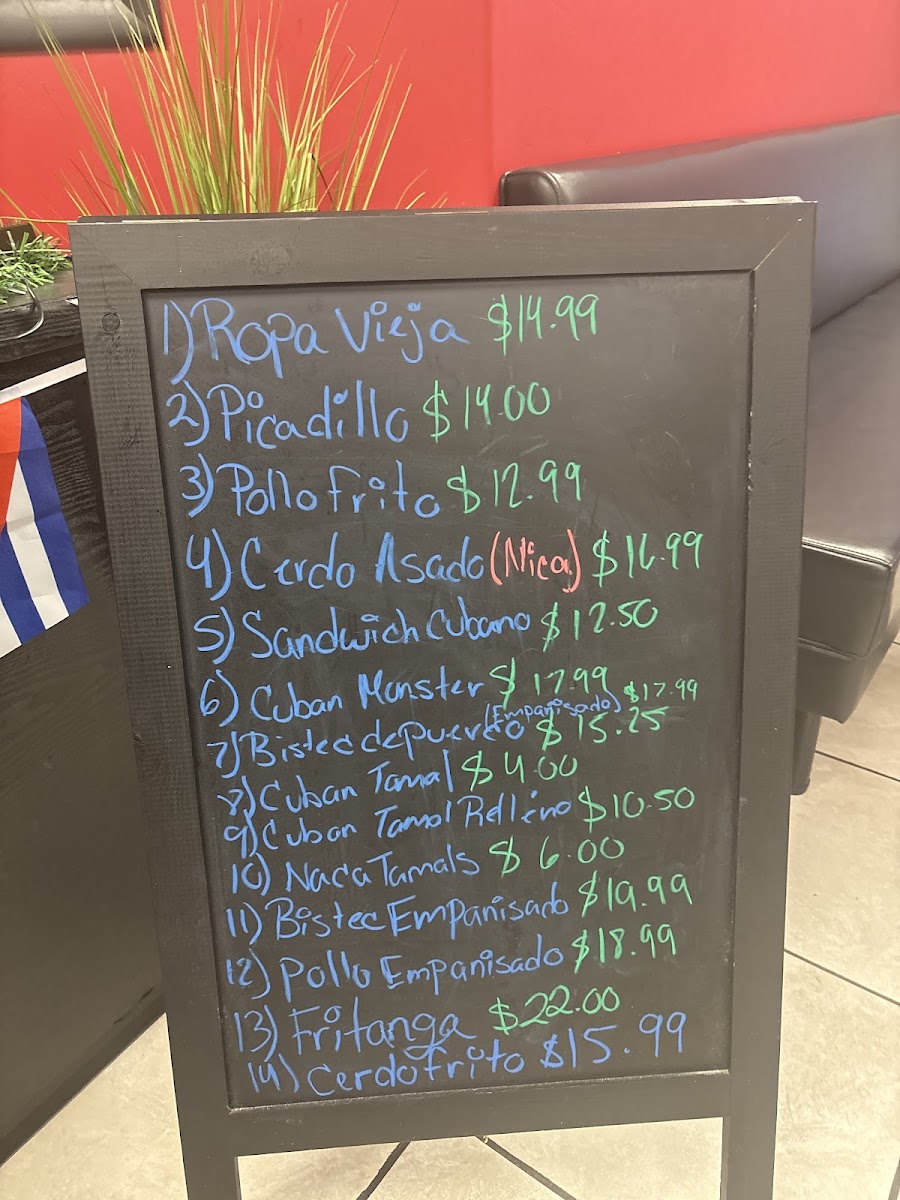 1) Ropa Vieja $14.99
2) Picadillo $14.00
3) Pollo frito $12.99
4) Cerdo Asado (Nica) $16.99
5) Sandwich Cubano $12.50
6) Cuban Monster $17.99
7) Bistec de puerco $15.25
(Empanisado) $17.99
8) Cuban Tamal $4.00
9) Cuban Tamal Relleno $10.50
10) NacaTamals $6.00
11) Bistec Empanisado $19.99
12) Pollo Empanisado $18.99
13) Fritanga $22.00
14) Cerdo frito $15.99